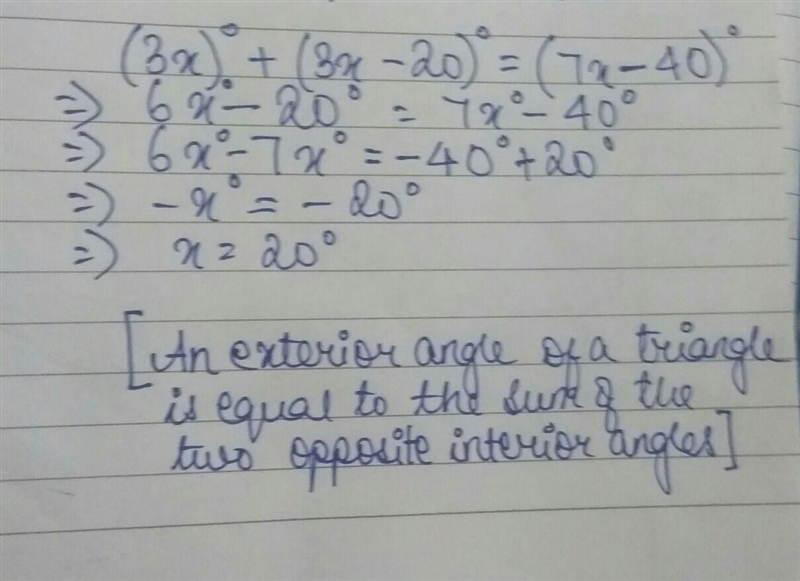 (3x)° + (3x - 20)° = (7x - 40)°
=> 6x° - 20° = 7x° - 40°
=> 6x° - 7x° = -40° + 20°
=> -x° = -20°
=> x = 20°
[An exterior angle of a triangle
is equal to the sum of the
two opposite interior angles]